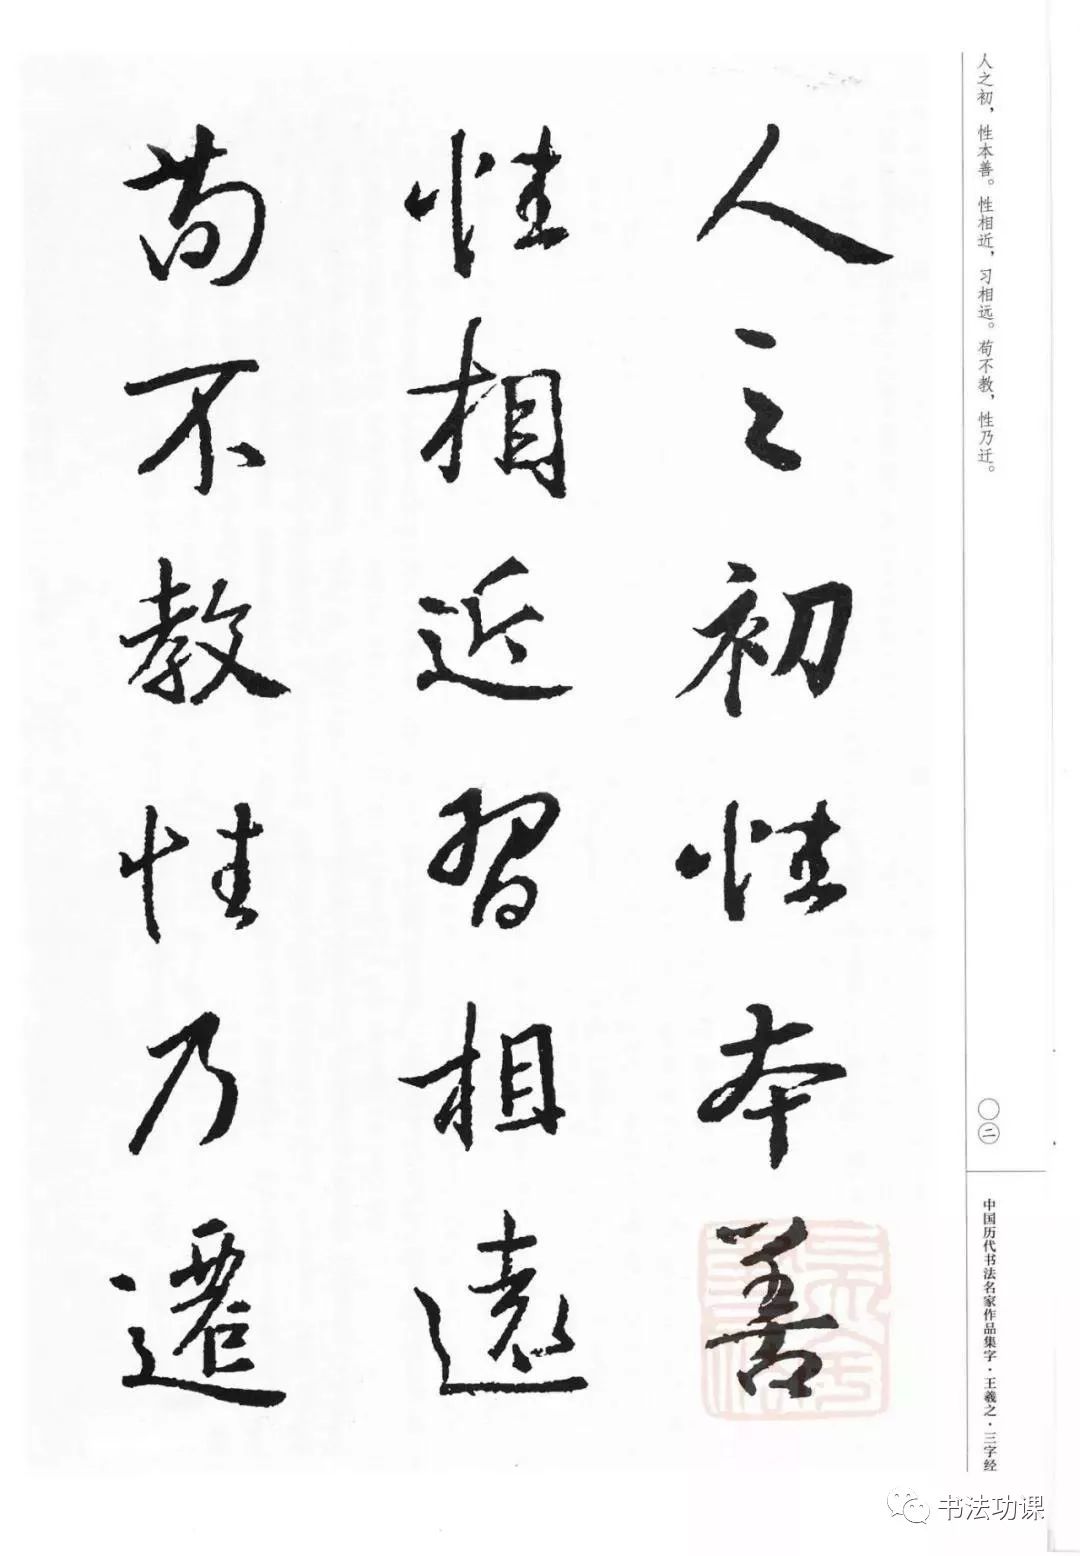 人之初性本善
性相近習相遠
苟不教性乃遷
人之初，性本善。性相近，习相远。苟不教，性乃迁。
〇二
中国历代书法名家作品集字·王羲之·三字经
书法功课